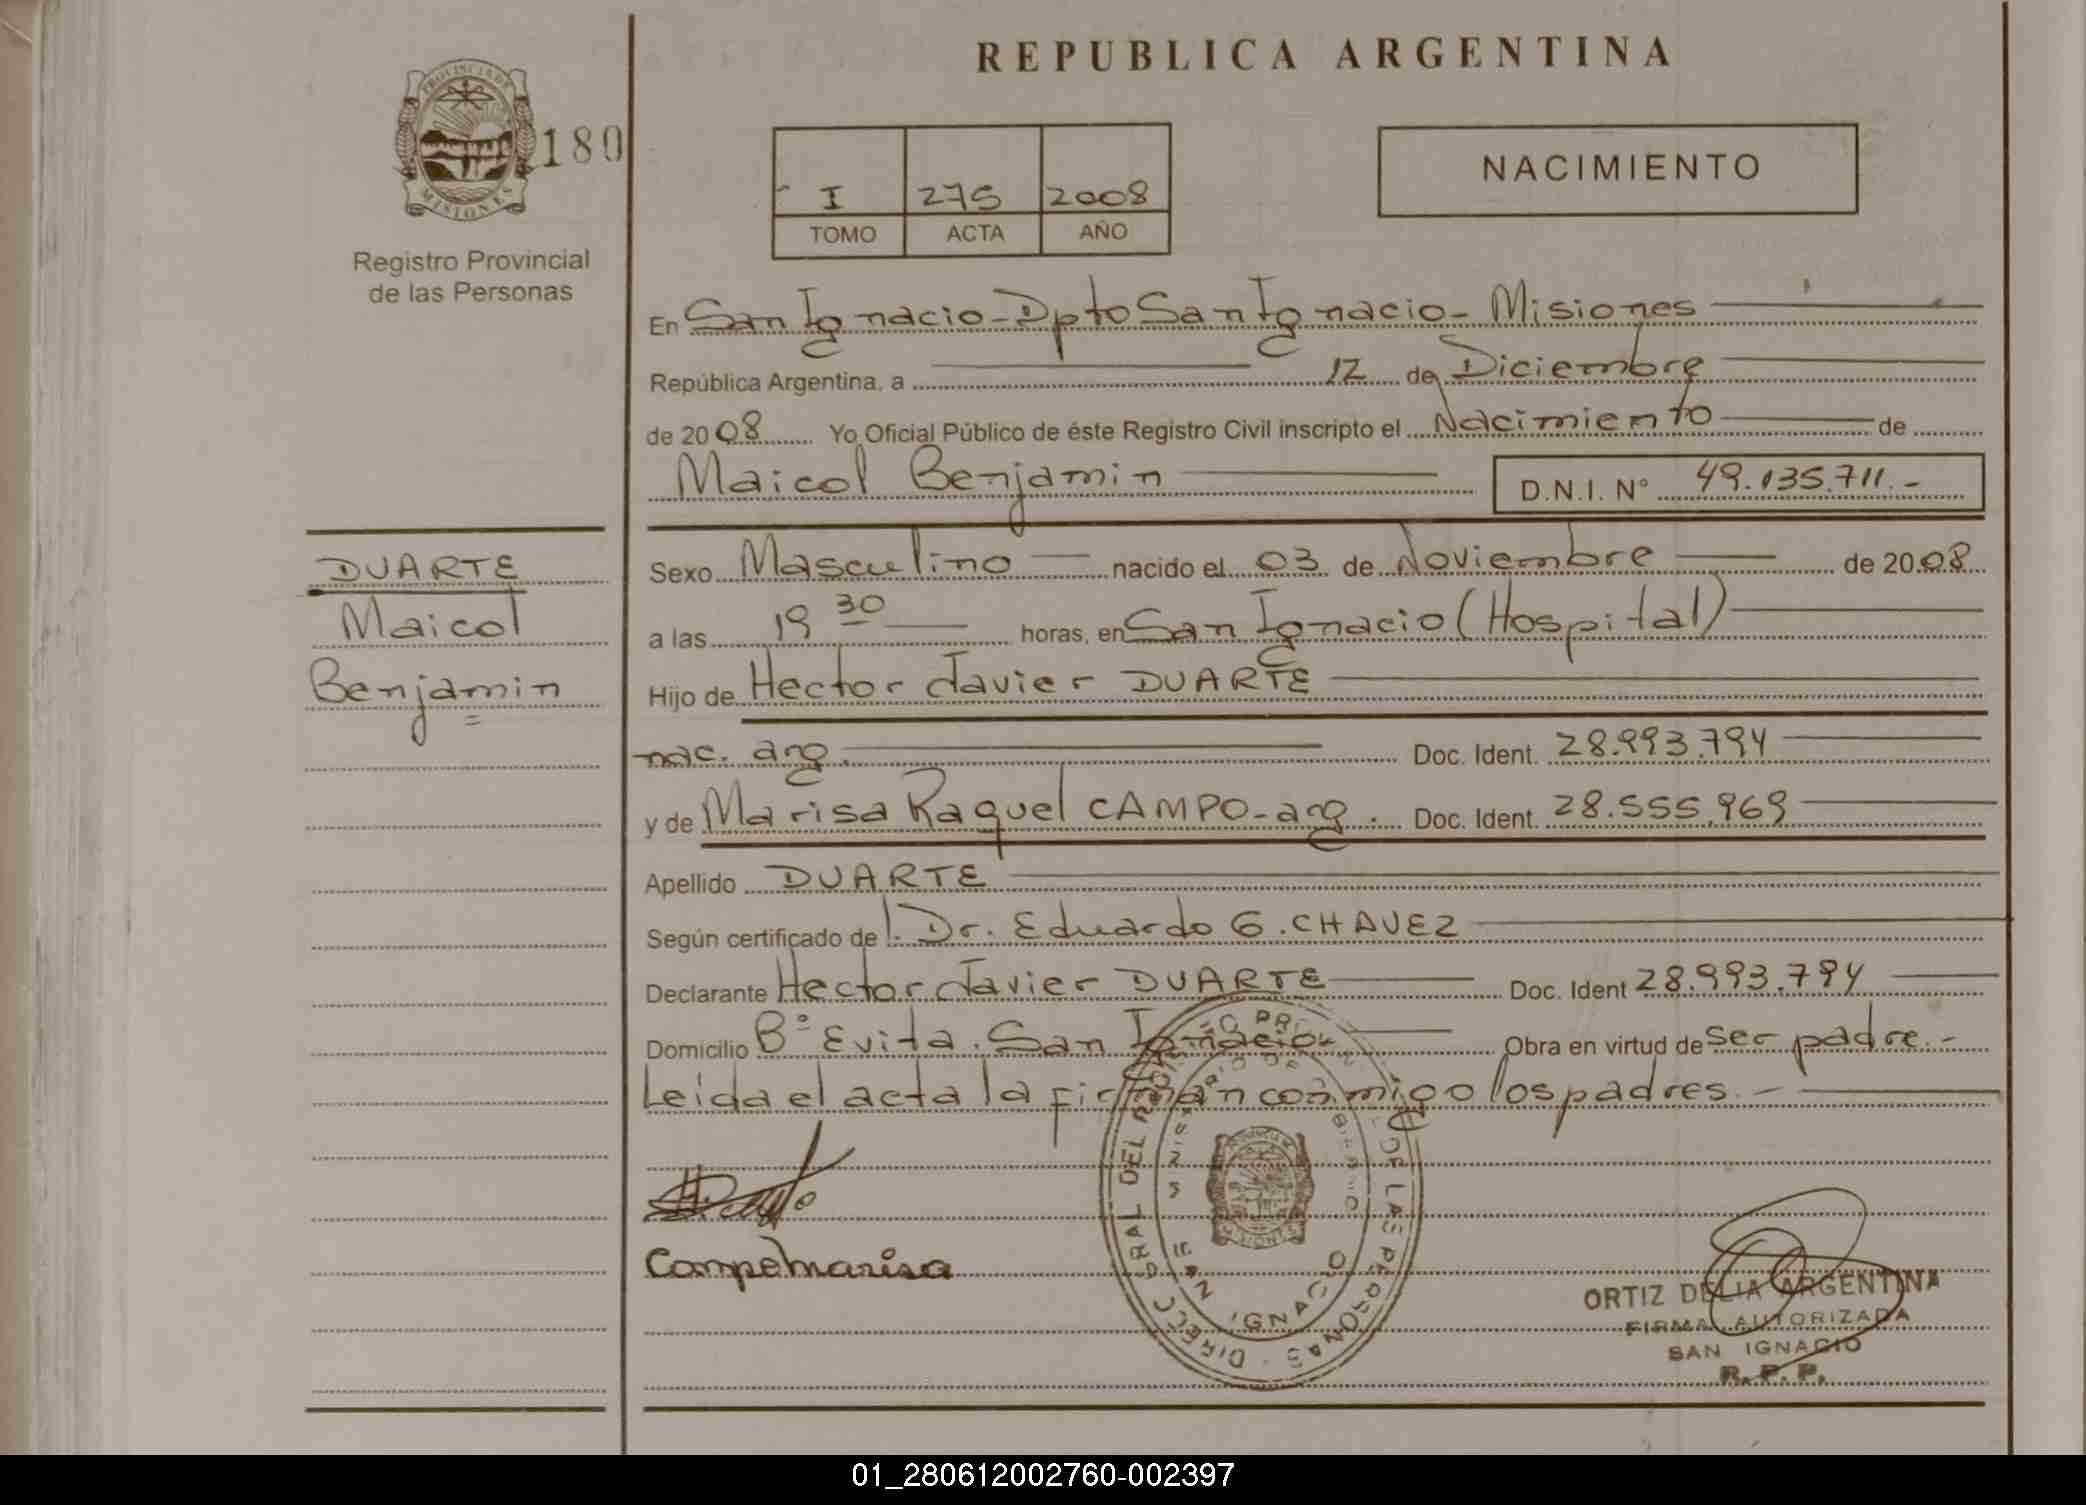 REPUBLICA ARGENTINA
PROVINCIA DE
MISIONES
180
Registro Provincial
de las Personas
I 275 2008
TOMO ACTA AÑO
NACIMIENTO
En San Ignacio - Dpto San Ignacio - Misiones
República Argentina, a 12 de Diciembre
de 2008 Yo Oficial Público de éste Registro Civil inscripto el Nacimiento de
Maicol Benjamin D.N.I. N° 49.135.711.-
DUARTE
Maicol
Benjamin
Sexo Masculino nacido el 03 de Noviembre de 2008
a las 19 30 horas, en San Ignacio (Hospital)
Hijo de Hector Javier DUARTE
nac. arg. Doc. Ident. 28.993.794
y de Marisa Raquel CAMPO - arg. Doc. Ident. 28.555.969
Apellido DUARTE
Según certificado del Dr. Eduardo G. CHAVEZ
Declarante Hector Javier DUARTE Doc. Ident 28.993.794
Domicilio B° Evita. San Ignacio Obra en virtud de ser padre.-
Leida el acta la firman conmigo los padres.-
Campo marisa
DE LAS PERSONAS
IGNACIO
MISIONES
ORTIZ DELIA ARGENTINA
FIRMA AUTORIZADA
SAN IGNACIO
R. P. P.
01_280612002760-002397